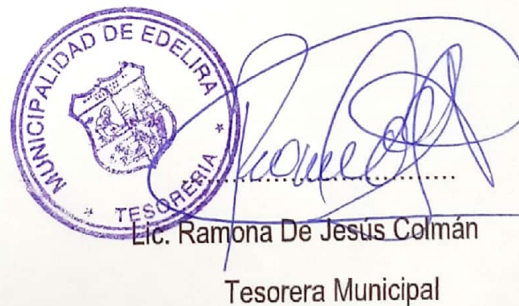 MUNICIPALIDAD DE EDELIRA
* TESORERIA *
Lic. Ramona De Jesús Colmán
Tesorera Municipal